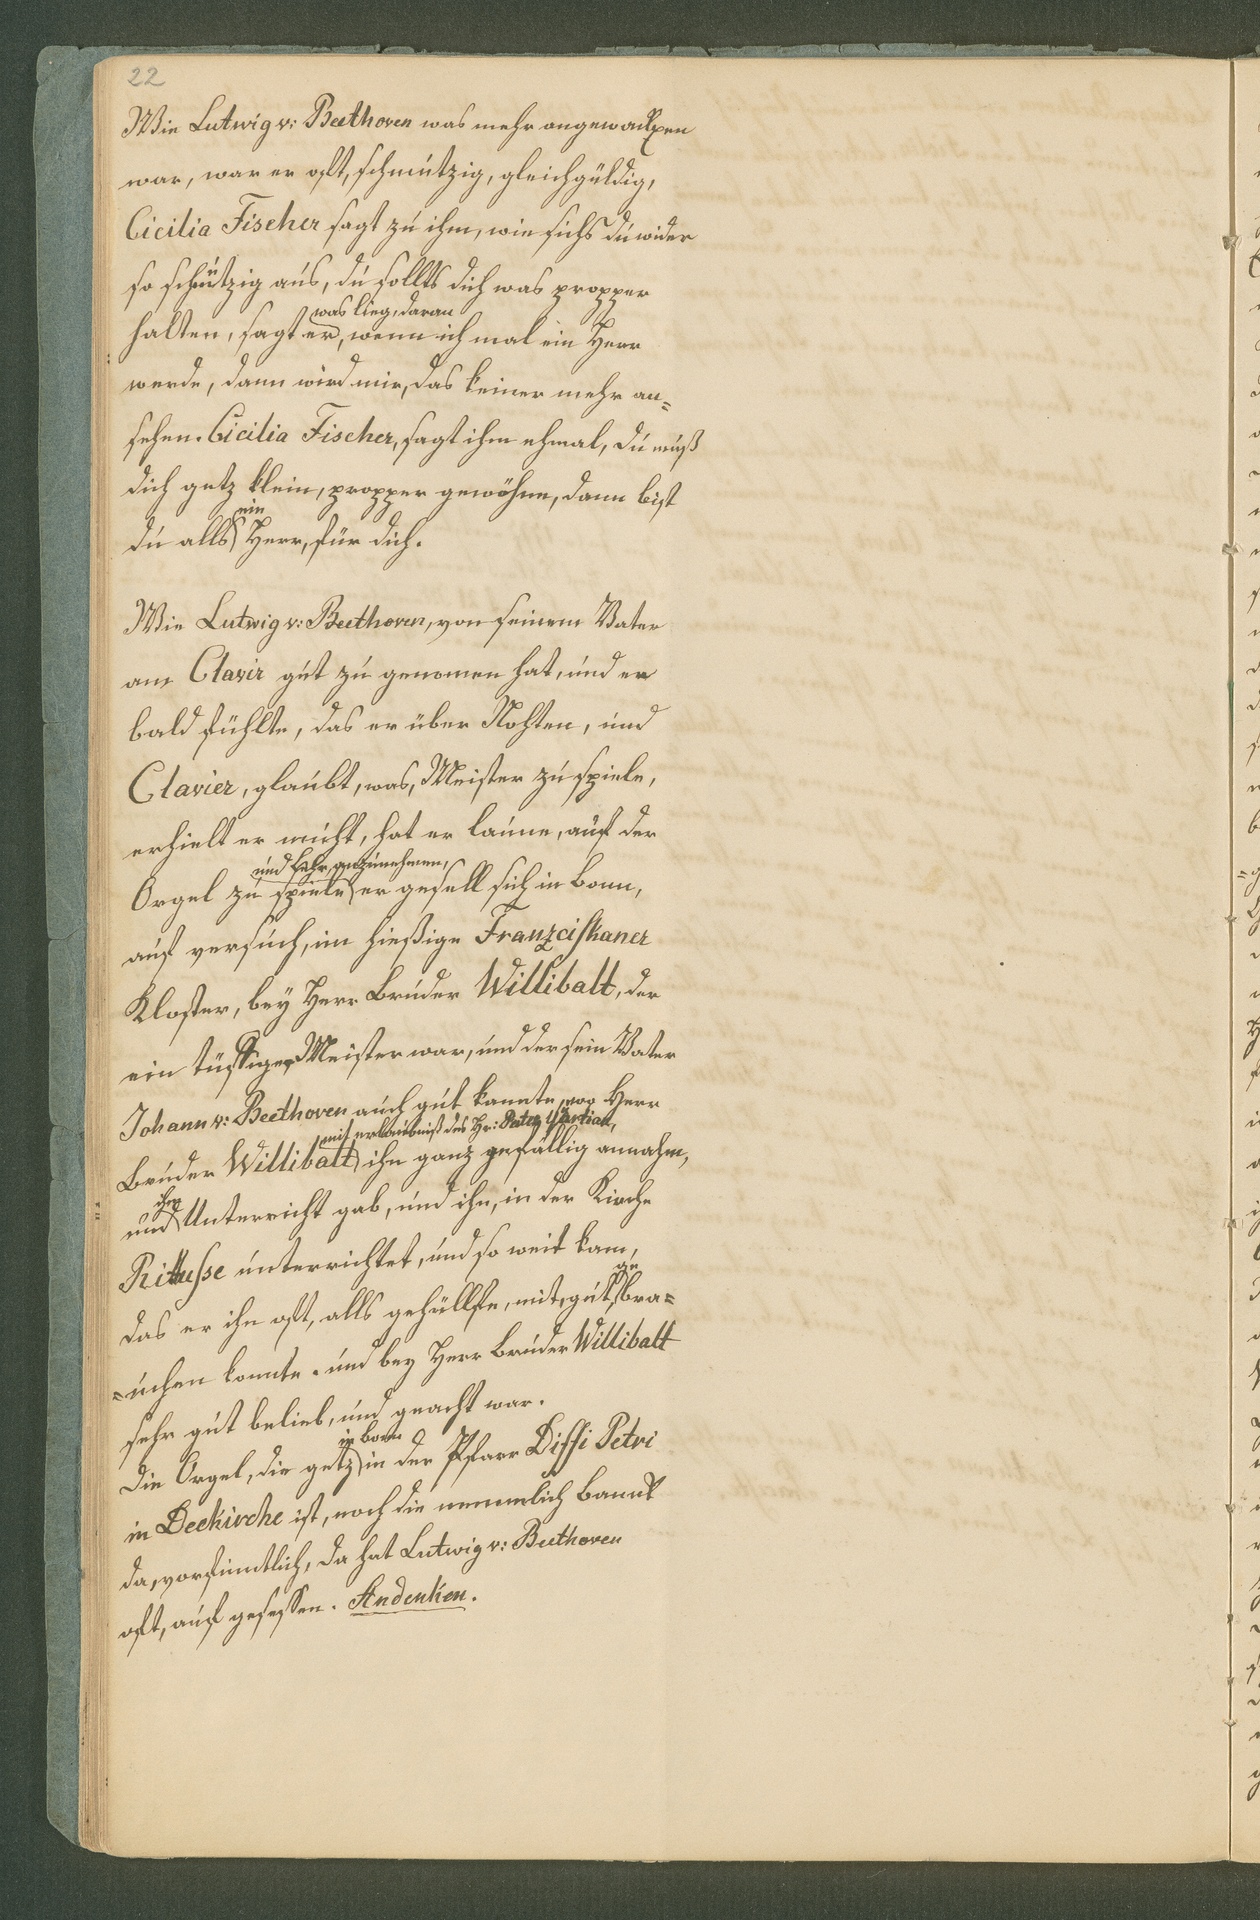 22
Wie Lutwig v: Beethoven was mehr angewachsen
war, war er oft, schmützig, gleichgüldig,
Cicilia Fischer sagt zu ihm, wie sichs du wider
so schmützig aus, du sollts dich was propper
was lieg, daran
halten, sagt er, wenn ich mal ein Herr
werde, dann wird mir, das keiner mehr an=
sehen. Cicilia Fischer, sagt ihm ehmal, du muß
dich getz klein, propper gewöhne, dann bist
ein
du alls Herr, für dich.
Wie Lutwig v: Beethoven, von seinem Vater
am Clavir gut zu genomen hat, und er
bald fühlte, das er über Nohten, und
Clavier, glaubt, was, Meister zu spiele,
erhielt er mücht, hat er laune, auf der
und Lehr anzunehmen,
Orgel zu spiele er gesell sich in Bonn,
auf versuch, im hießige Franzciskaner
Kloster, bey Herr Bruder Willibalt, der
ein tüssiger Meister war, und der sein Vater
Johann v: Beethoven auch gut kannte, wo Herr
mit erlaubniß des Hr: Pater Gardian,
Bruder Willibalt ihn ganz gefällig annahm,
ihm
und Unterricht gab, und ihn, in der Kirche
Rittusse unterrichtet, und so weit kam,
ge
das er ihn oft, alls gehüllfe, mit, gut, bra=
=uchen konnte. und bey Herr Bruder Willibalt
sehr gut belieb, und geacht war.
in bonn
Die Orgel, die getz in der Pfarr Dissi Petri
in Deekirche ist, noch die nemmlich Bannk
da, vorfinntlich, da hat Lutwig v: Beethoven
oft, auf gesessen. Andenken.